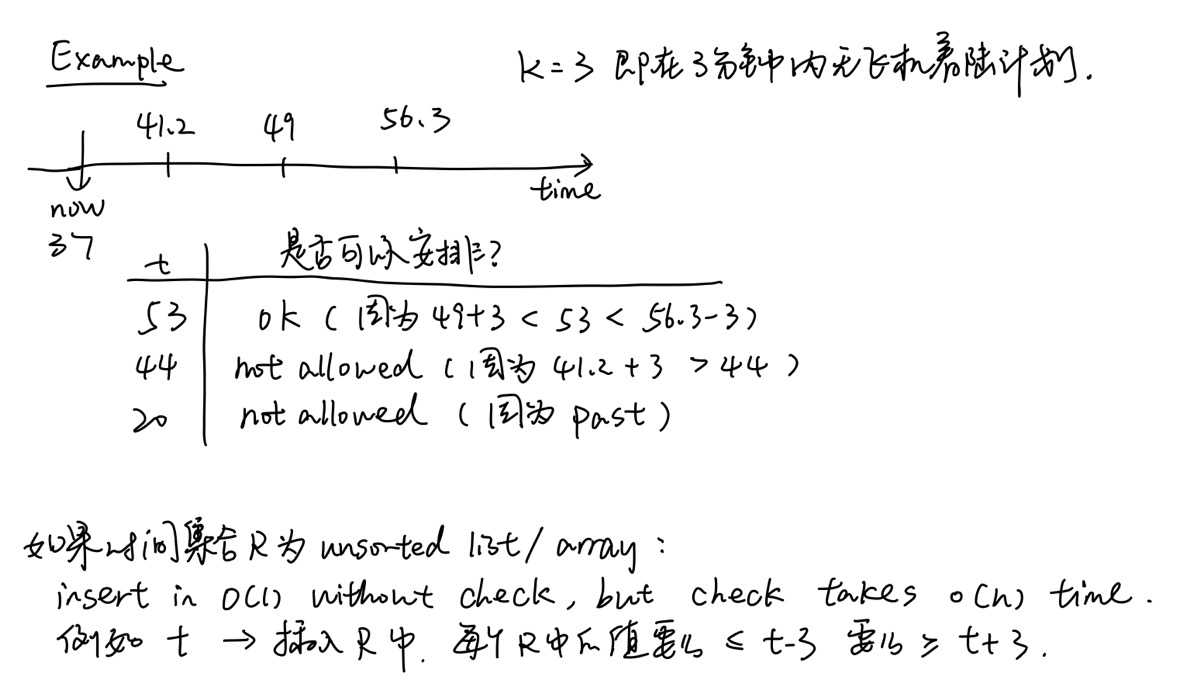 Example
k = 3 即在3分钟内无飞机着陆计划.
41.2 49 56.3
time
now
37
t 是否可以安排?
53 ok (因为 49+3 < 53 < 56.3-3)
44 not allowed (因为 41.2 + 3 > 44)
20 not allowed (因为 past)
如果时间集合R为 unsorted list/array:
insert in O(1) without check, but check takes O(n) time.
例如 t → 插入R中. 每个R中的值要么 ≤ t-3 要么 ≥ t+3.